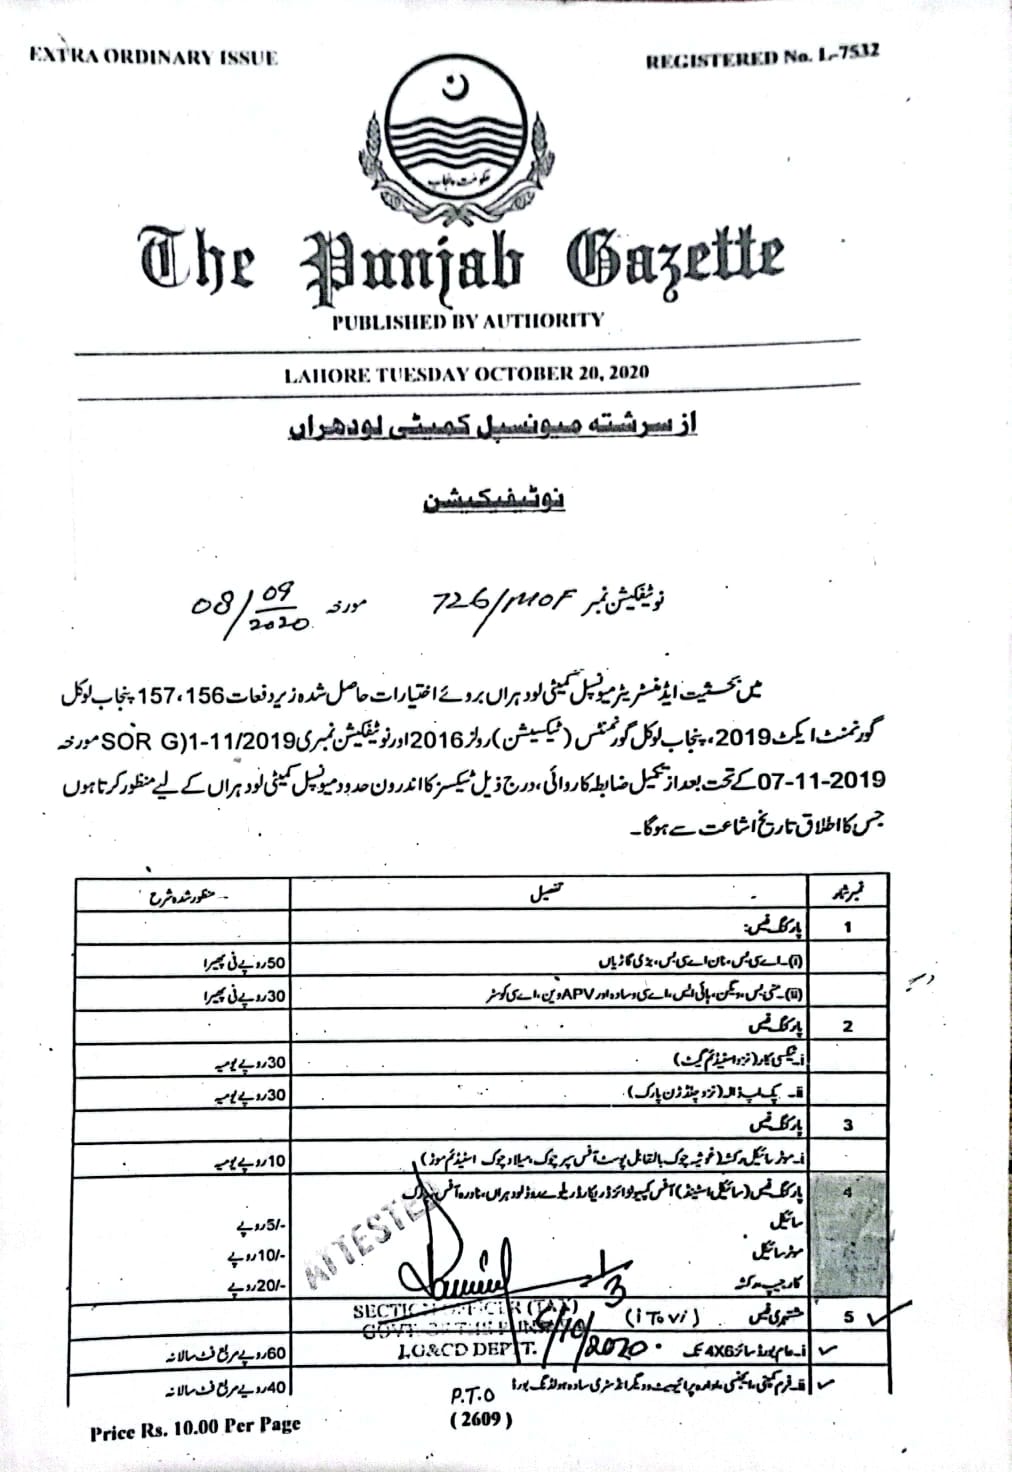 EXTRA ORDINARY ISSUE
REGISTERED No. L-7532
حکومت پنجاب
The Punjab Gazette
PUBLISHED BY AUTHORITY
LAHORE TUESDAY OCTOBER 20, 2020
از سرشتہ میونسپل کمیٹی لودھراں
نوٹیفیکیشن
نوٹیفکیشن نمبر 726/MOF مورخہ 08/09/2020
میں بحیثیت ایڈمنسٹریٹر میونسپل کمیٹی لودہراں بروئے اختیارات حاصل شدہ زیر دفعات 156، 157 پنجاب لوکل
گورنمنٹ ایکٹ 2019، پنجاب لوکل گورنمنٹس (ٹیکسیشن) رولز 2016 اور نوٹیفکیشن نمبری SOR G)1-11/2019 مورخہ
07-11-2019 کے تحت بعد از تکمیل ضابطہ کاروائی، درج ذیل ٹیکسز کا اندرون حدود میونسپل کمیٹی لودہراں کے لیے منظور کرتا ہوں
جس کا اطلاق تاریخ اشاعت سے ہوگا۔
نمبر شمار تفصیل منظور شدہ شرح
1 پارکنگ فیس:
(i)۔اے سی بس، نان اے سی بس، بڑی گاڑیاں 50روپے فی پھیرا
(ii)۔منی بس، ویگن، ہائی ایس، اے سی و سادہ اور APV وین، اے سی کوسٹر 30روپے فی پھیرا
2 پارکنگ فیس
i۔ٹیکسی کار (نزد اسٹیڈیم گیٹ) 30روپے یومیہ
ii۔ پک اپ ڈالہ (نزد چلڈرن پارک) 30روپے یومیہ
3 پارکنگ فیس
i۔موٹر سائیکل رکشہ (غوثیہ چوک بالمقابل پوسٹ آفس سپر چوک، میلاد چوک اسٹیڈیم موڑ) 10روپے یومیہ
4 پارکنگ فیس (سائیکل اسٹینڈ) آفس کمپیوٹرائزڈ ریکارڈ ریلوے روڈ لودہراں، نادرہ آفس
سائیکل 5/-روپے
موٹر سائیکل 10/-روپے
کار جیپ رکشہ 20/-روپے
ATTESTED
1/3
SECTION OFFICER (TAX)
GOVT. OF THE PUNJAB
LG&CD DEPTT.
/10/2020
5 مشتہری فیس (i To vi)
i۔عام بورڈ سائز 4X6 تک 60روپے مربع فٹ سالانہ
ii۔فرم کمپنی، ایجنسی، ادارہ پرائیویٹ و دیگر انڈسٹری سادہ ہولڈنگ بورڈ 40روپے مربع فٹ سالانہ
P.T.O
Price Rs. 10.00 Per Page
(2609)